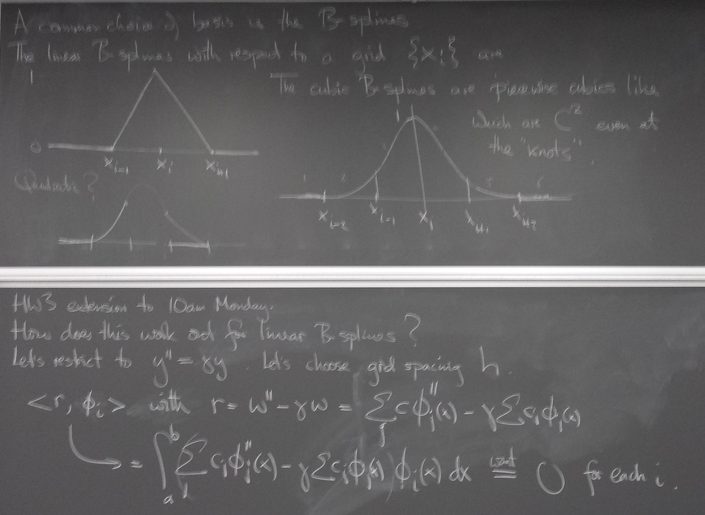 A common choice of basis is the B-splines
The linear B-splines with respect to a grid {x_i} are
1
0
x_{i-1} x_i x_{i+1}
Quadratic?
The cubic B-splines are piecewise cubics like
which are C^2 even at
the "knots".
1
x_{i-2} x_{i-1} x_i x_{i+1} x_{i+2}
HW3 extension to 10am Monday.
How does this work out for linear B-splines?
Let's restrict to y'' = γy. Let's choose grid spacing h.
<r, φ_i> with r = w'' - γw = Σ_j c φ_j''(x) - γ Σ c_j φ_j(x)
= ∫_a^b Σ_j c_j φ_j''(x) - γ Σ c_j φ_j(x) φ_i(x) dx =^{want} 0 for each i.